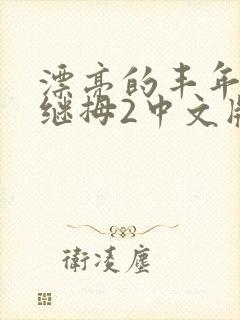 漂亮的丰年
继拇2中文版
衛凌塵